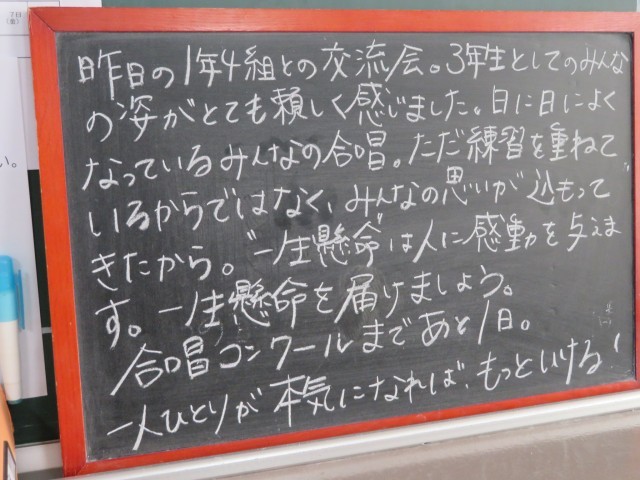 7日
(金)
い。
昨日の1年4組との交流会。3年生としてのみんな
の姿がとても頼しく感じました。日に日によく
なっているみんなの合唱。ただ練習を重ねて
いるからではなく、みんなの思いが込もって
きたから。"一生懸命"は人に感動を与えま
す。一生懸命を届けましょう。
合唱コンクールまであと1日。
一人ひとりが本気になれば、もっといける!